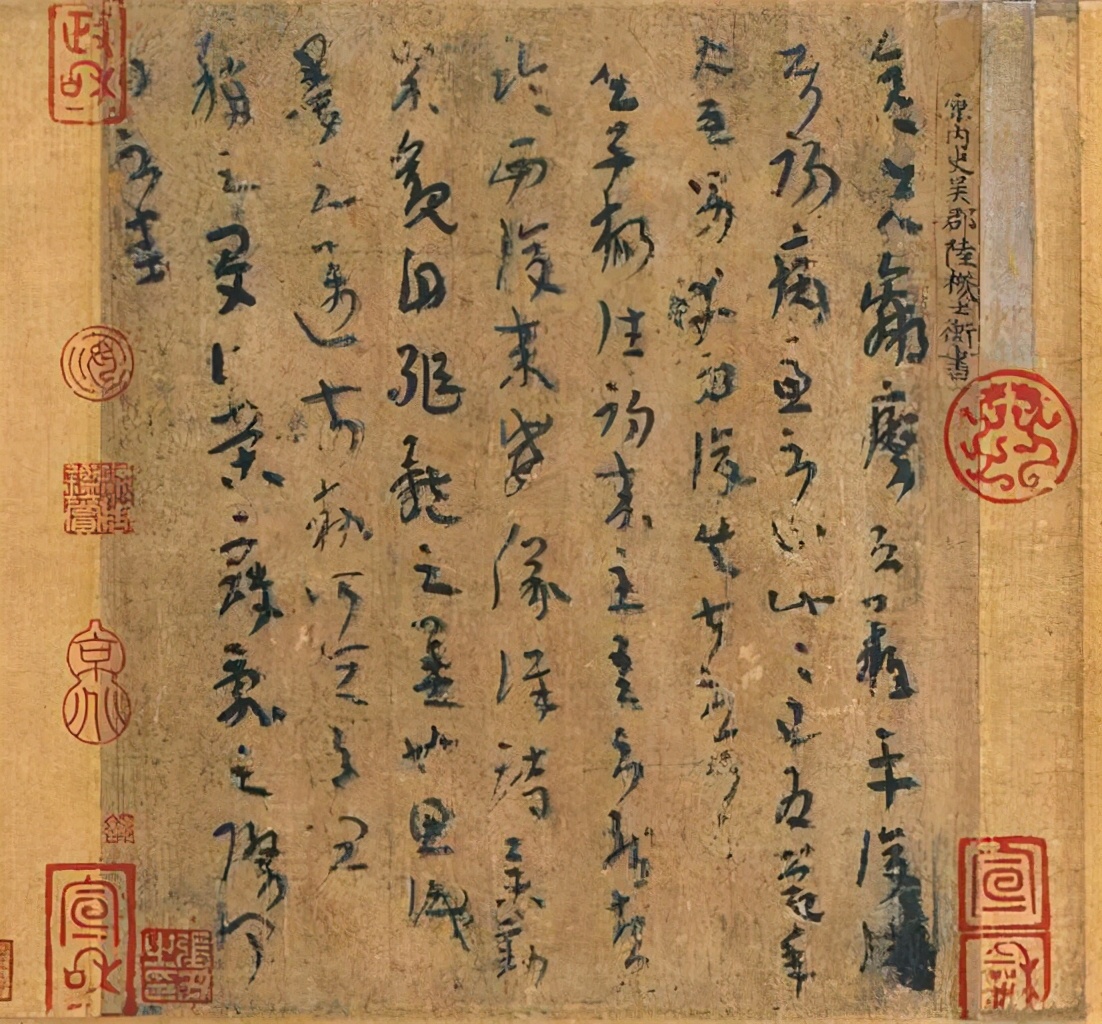 晉內史吳郡陸機士衡書
彦先羸瘵恐難平復往屬
初病慮不止此此已為慶承
使唯男幸為復失前憂耳
吳子楊往初來主吾不能盡
臨西復來威儀詳跱舉動
成觀自軀體之美也思識
量之邁前執所恒有宜
稱之夏伯榮寇亂之際聞
問不悉
宣和
政和
宣和